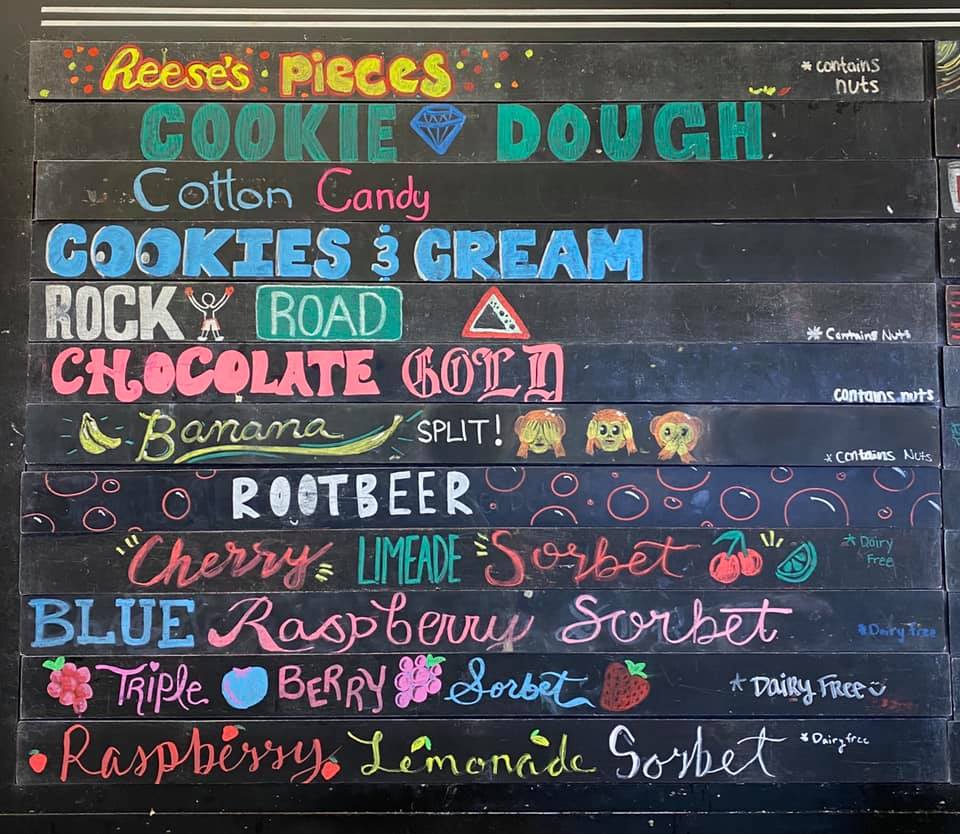 Reese's Pieces *contains nuts
COOKIE DOUGH
Cotton Candy
COOKIES & CREAM
ROCK ROAD *Contains Nuts
CHOCOLATE GOLD contains nuts
Banana SPLIT! *contains Nuts
ROOTBEER
Cherry LIMEADE Sorbet *Dairy Free
BLUE Raspberry Sorbet *Dairy free
TRiple BERRY Sorbet *Dairy Free
Raspberry Lemonade Sorbet *Dairy free